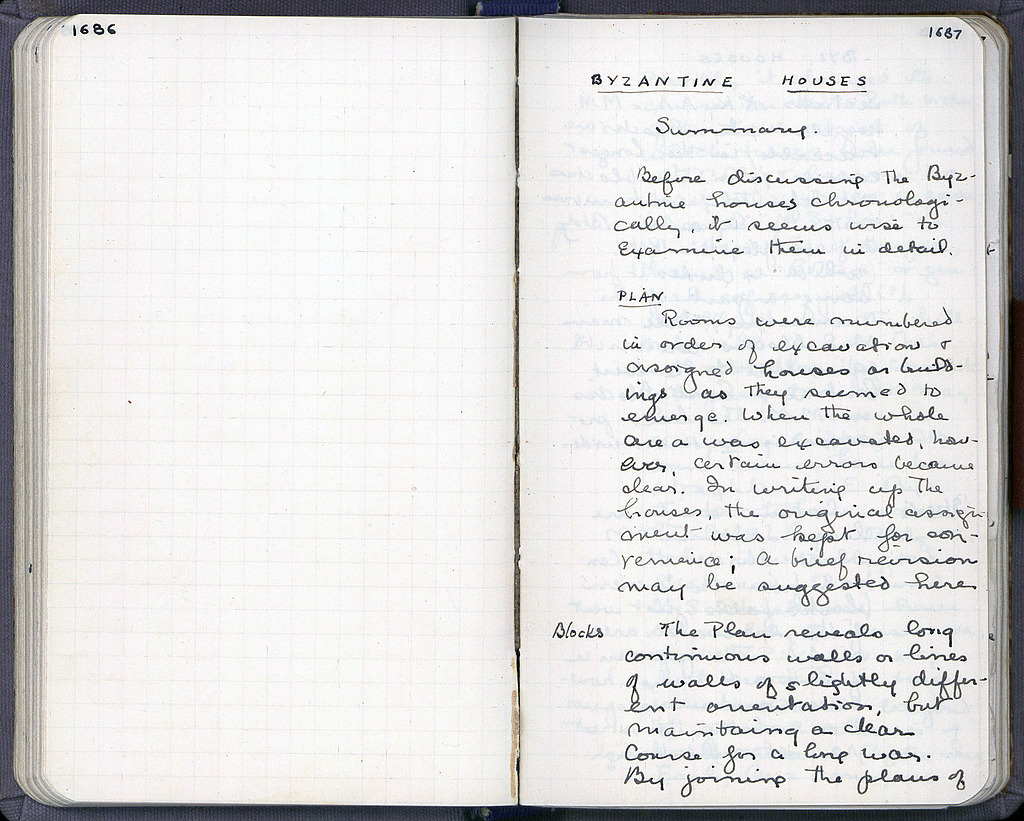 1686
1687
BYZANTINE HOUSES
Summary.
Before discussing the Byz-
antine houses chronologi-
cally, it seems wise to
examine them in detail.
PLAN
Rooms were numbered
in order of excavation &
assigned houses or build-
ings as they seemed to
emerge. When the whole
area was excavated, how-
ever, certain errors became
clear. In writing up the
houses, the original assign-
ment was kept for con-
venience; A brief revision
may be suggested here
Blocks The Plan reveals long
continuous walls or lines
of walls of slightly differ-
ent orientation, but
maintaing a clear
course for a long way.
By joining the plans of